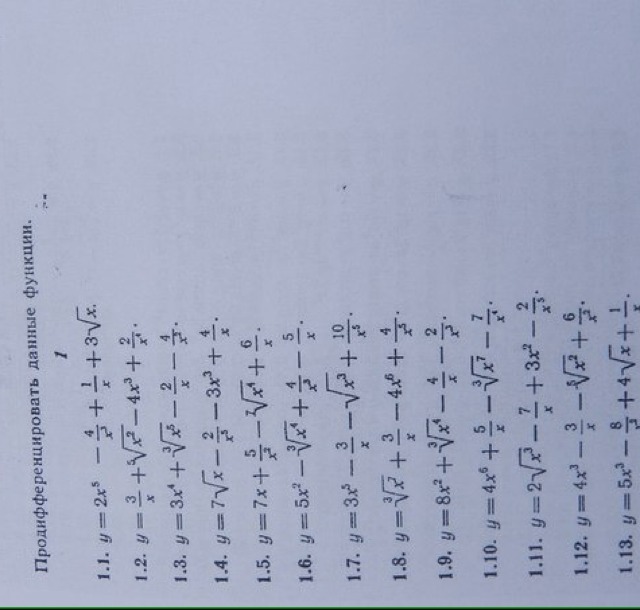 Продифференцировать данные функции.
1
1.1. y = 2x⁵ − 4/x³ + 1/x + 3√x.
1.2. y = 3/x + ⁵√x² − 4x³ + 2/x⁴.
1.3. y = 3x⁴ + ³√x⁵ − 2/x − 4/x².
1.4. y = 7√x − 2/x⁵ − 3x³ + 4/x.
1.5. y = 7x + 5/x² − ⁷√x⁴ + 6/x.
1.6. y = 5x² − ³√x⁴ + 4/x³ − 5/x.
1.7. y = 3x⁵ − 3/x − √x³ + 10/x⁵.
1.8. y = ³√x⁷ + 3/x − 4x⁶ + 4/x⁵.
1.9. y = 8x² + ³√x⁴ − 4/x − 2/x³.
1.10. y = 4x⁶ + 5/x − ³√x⁷ − 7/x⁴.
1.11. y = 2√x³ − 7/x + 3x² − 2/x⁵.
1.12. y = 4x³ − 3/x − ⁵√x² + 6/x².
1.13. y = 5x³ − 8/x² + 4√x + 1/x.